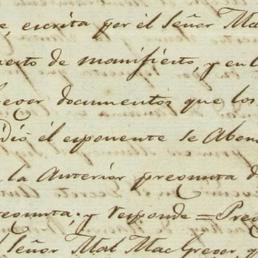 e, escrita por el Señor Mac
uesto de manifiesto, y en l
regor documentos que los
dió él exponente se Abon
la Anterior presunta d
resunta. y responde = Preg
Señor Mal Mac Gregor, q